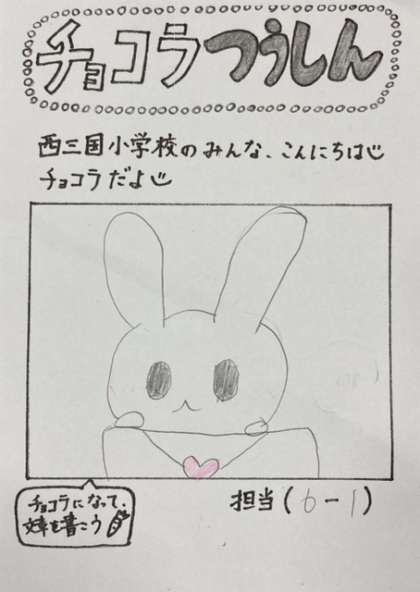 チョコラつうしん
西三国小学校のみんな、こんにちは
チョコラだよ
チョコラになって、
文章を書こう
担当(6-1)